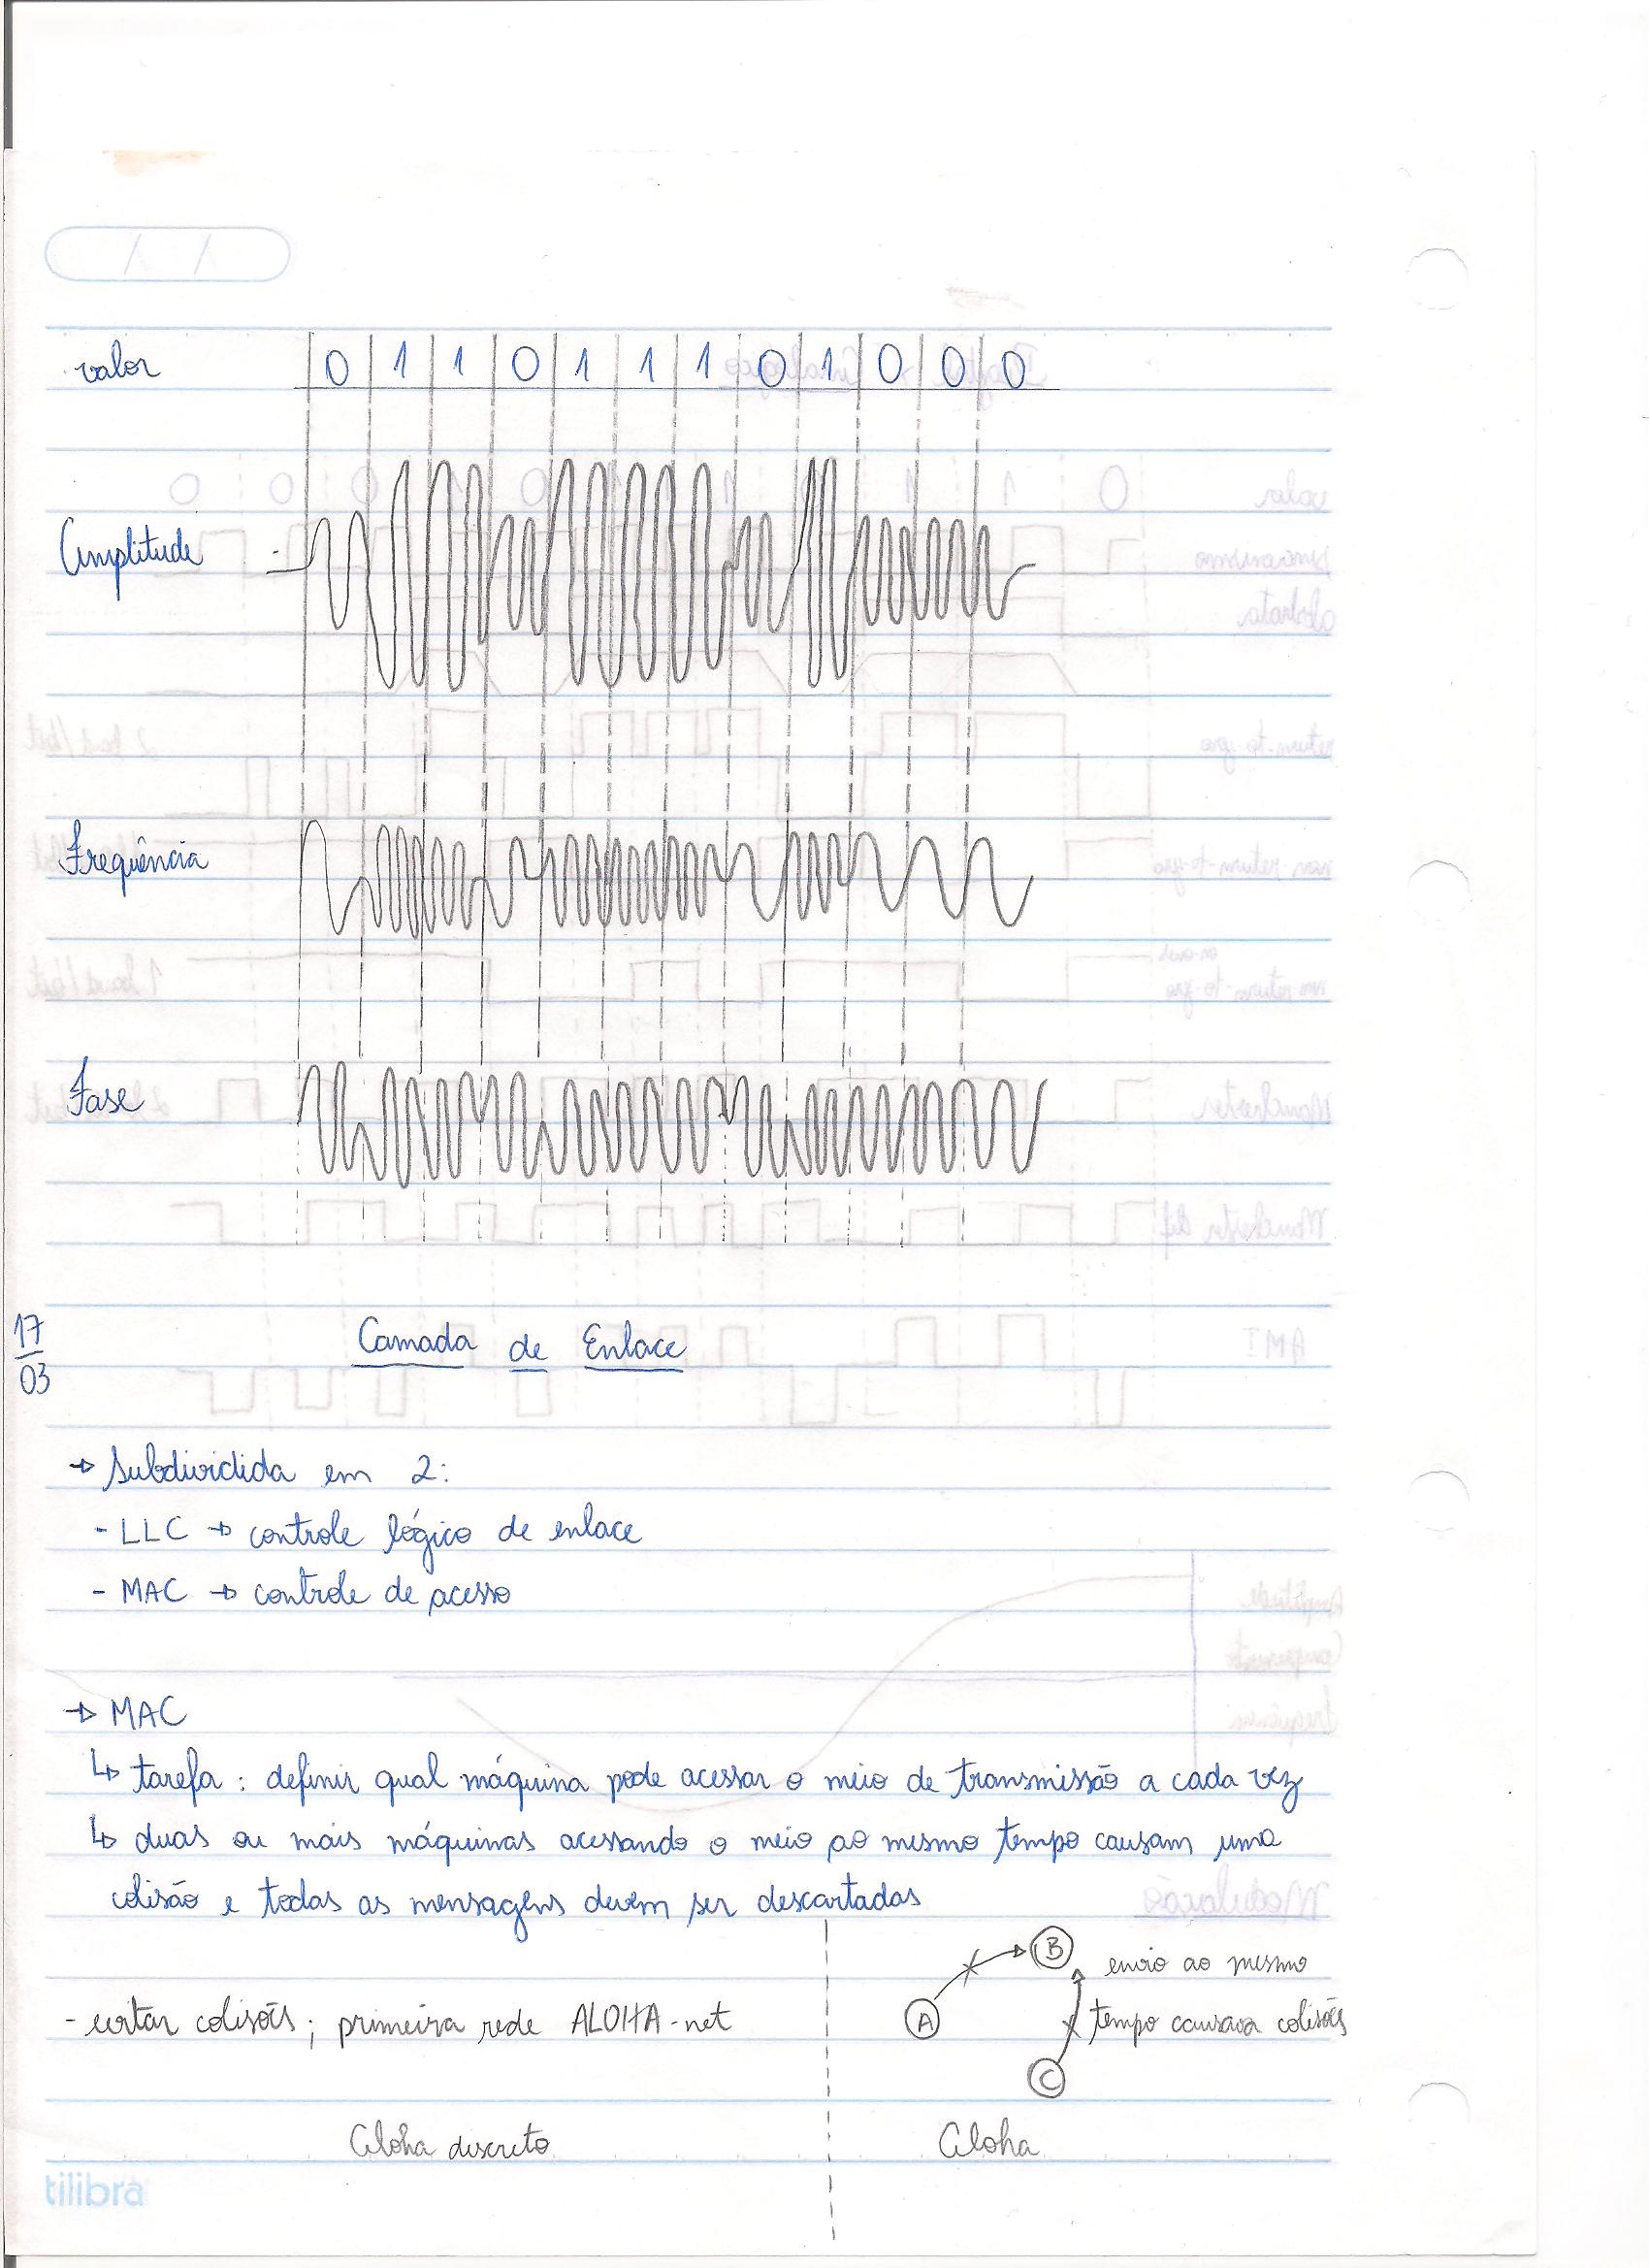 valor 0 1 1 0 1 1 1 0 1 0 0 0
Amplitude
Frequência
Fase
17/03 Camada de Enlace
→ Subdividida em 2:
- LLC → controle lógico de enlace
- MAC → controle de acesso
→ MAC
↳ tarefa: definir qual máquina pode acessar o meio de transmissão a cada vez
↳ duas ou mais máquinas acessando o meio ao mesmo tempo causam uma
colisão e todas as mensagens devem ser descartadas
- evitar colisões; primeira rede ALOHA-net
B envio ao mesmo
A tempo causava colisões
C
Aloha discreto
Aloha
tilibra